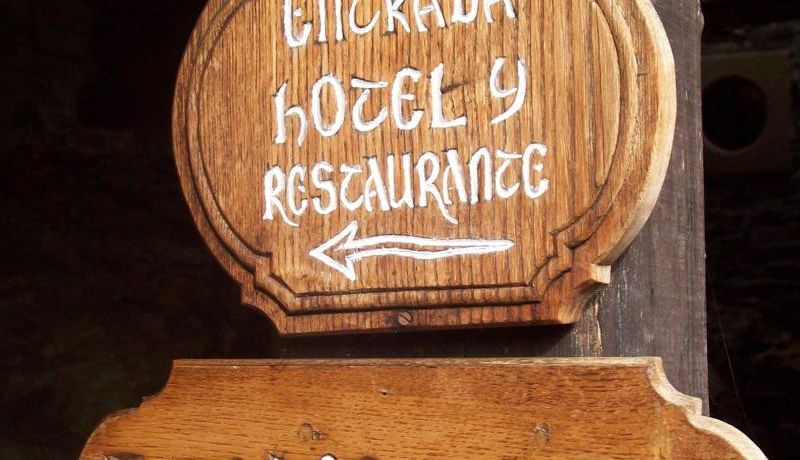 ENTRADA
hOTEL Y
RESTAURANTE